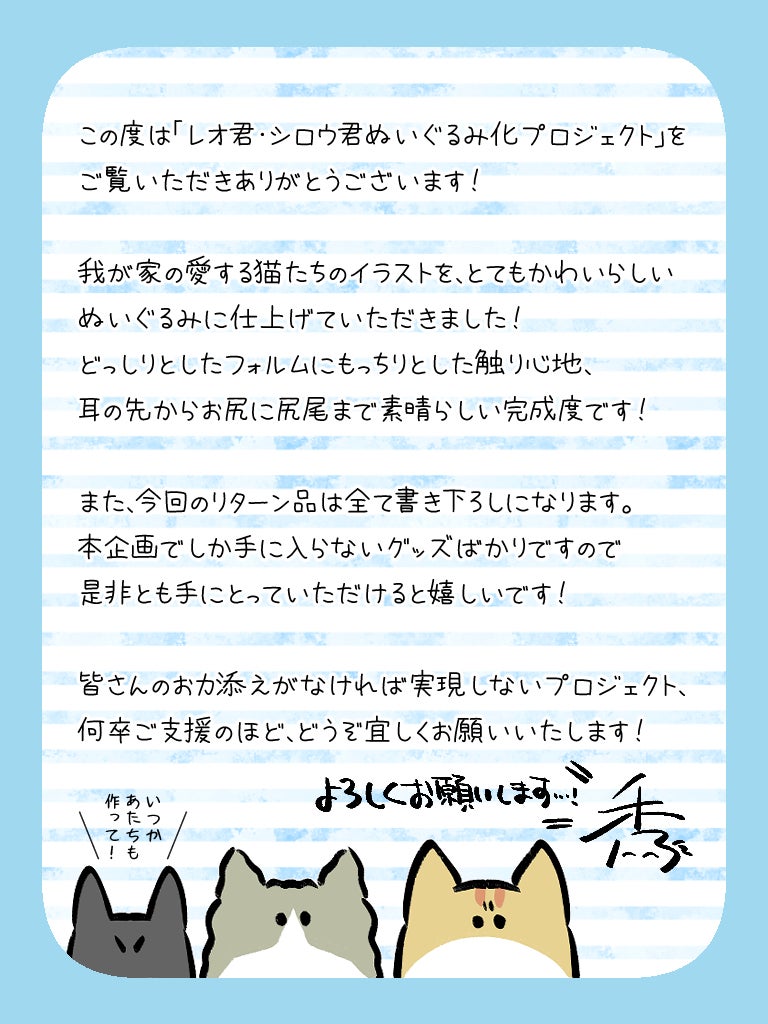 この度は「レオ君・シロウ君ぬいぐるみ化プロジェクト」を
ご覧いただきありがとうございます！
我が家の愛する猫たちのイラストを、とてもかわいらしい
ぬいぐるみに仕上げていただきました！
どっしりとしたフォルムにもっちりとした触り心地、
耳の先からお尻に尻尾まで素晴らしい完成度です！
また、今回のリターン品は全て書き下ろしになります。
本企画でしか手に入らないグッズばかりですので
是非とも手にとっていただけると嬉しいです！
皆さんのお力添えがなければ実現しないプロジェクト、
何卒ご支援のほど、どうぞ宜しくお願いいたします！
よろしくお願いします…！
いつか
あたちも
作って！